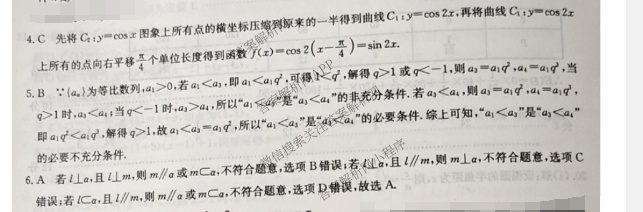 4.C 先将 C₂:y=cos x 图象上所有点的横坐标压缩到原来的一半得到曲线 C₁:y=cos 2x,再将曲线 C₁:y=cos 2x
上所有的点向右平移 π/4 个单位长度得到函数 f(x)=cos 2(x-π/4)=sin 2x.
5.B ∵{aₙ}为等比数列,a₁>0,若 a₁<a₃,即 a₁<a₁q²,可得 1<q²,解得 q>1 或 q<-1,则 a₃=a₁q²,a₄=a₁q³,当
q>1 时,a₃<a₄;当 q<-1 时,a₃>a₄,所以“a₁<a₃”是“a₃<a₄”的非充分条件.若 a₃<a₄,则 a₃=a₁q²,a₄=a₁q³,
即 a₁q²<a₁q³,解得 q>1,故 a₁<a₃=a₁q²,所以“a₁<a₃”是“a₃<a₄”的必要条件.综上可知,“a₁<a₃”是“a₃<a₄”
的必要不充分条件.
6.A 若 l⊥α,且 l⊥m,则 m∥α 或 m⊂α,不符合题意,选项 B 错误;若 l⊥α,且 l∥m,则 m⊥α,不符合题意,选项 C
错误;若 l⊂α,且 l∥m,则 m∥α 或 m⊂α,不符合题意,选项 D 错误,故选 A.